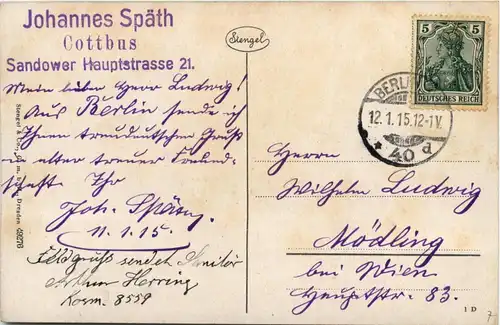 Johannes Späth
Cottbus
Sandower Hauptstrasse 21.
Mein lieber Herr Ludwig!
Aus Berlin sende ich
Ihnen treudeutschen Gruß
in alter treuer Freund-
schaft Ihr
Joh. Späth
11.1.15.
Feldgruß sendet Sanitär
Arthur Herring
Korm. 8559
Stengel
Stengel & Co., G. m. b. H., Dresden 49276
5 5
DEUTSCHES REICH
BERLIN
12.1.15.12-1V.
* 40 d
Herrn
Wilhelm Ludwig
Mödling
bei Wien
Hauptstr. 83.
1 D
7